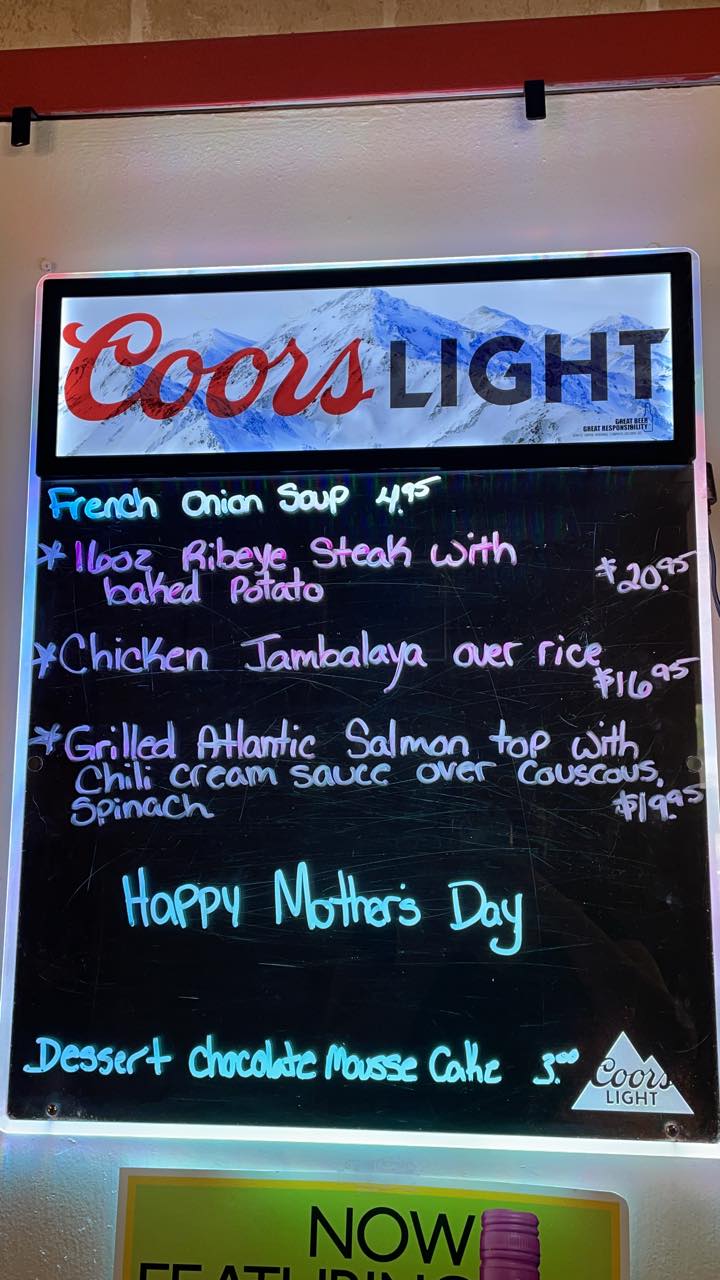 Coors LIGHT
GREAT BEER
GREAT RESPONSIBILITY
French Onion Soup 4.95
*16oz Ribeye Steak with
baked Potato $20.95
*Chicken Jambalaya over rice
$16.95
*Grilled Atlantic Salmon top with
Chili cream sauce over Couscous,
Spinach $19.95
Happy Mother's Day
Dessert Chocolate Mousse Cake 3.00
Coors
LIGHT
NOW
FEATURING